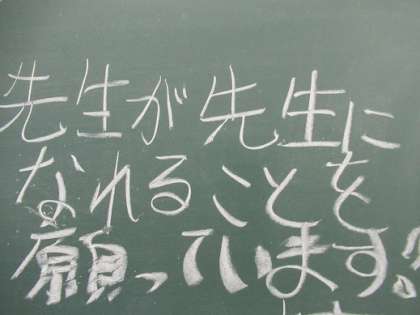 先生が先生に
なれることを
願っています!